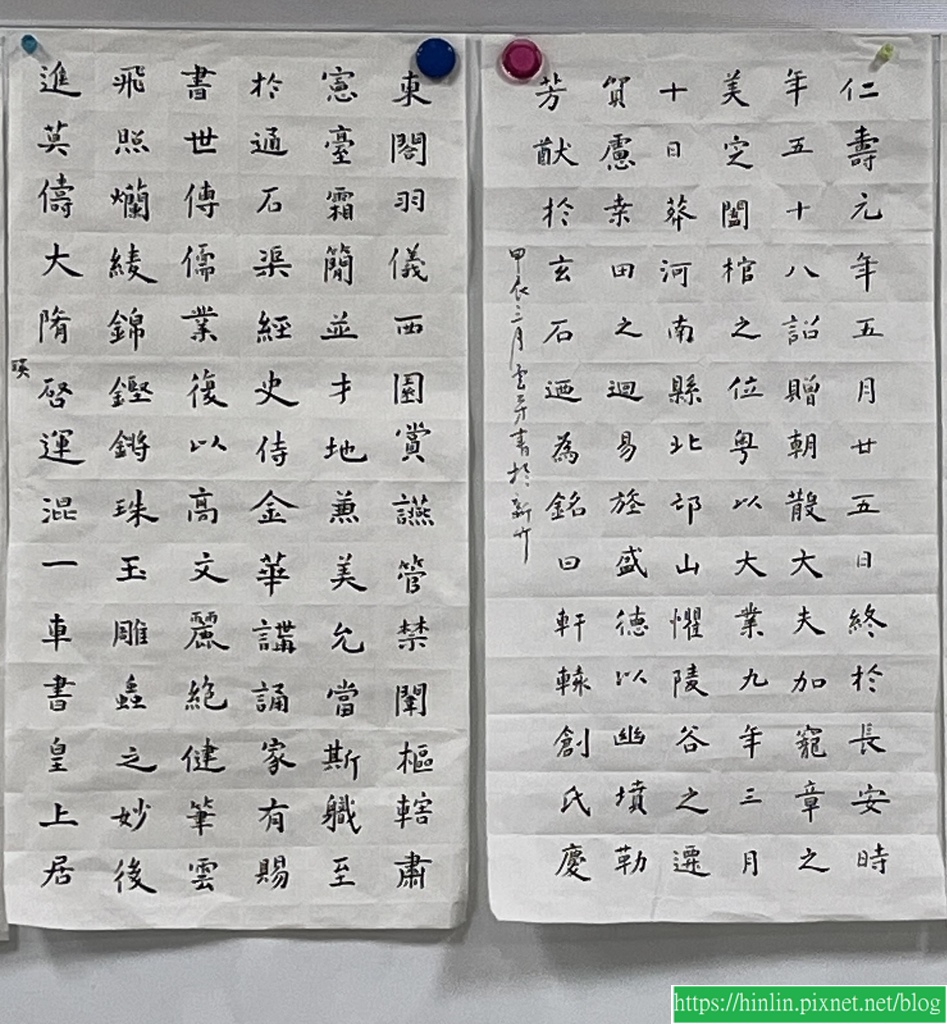 仁壽元年五月廿五日終於長安時
年五十八詔贈朝散大夫加寵章之
美空闔棺之位粵以大業九年三月
十日葬河南縣北邙山懼陵谷之遷
貿慮桒田之迴易旌盛德以幽墳勒
芳猷於玄石迺為銘曰軒轅創氏慶
甲辰三月芳書於新竹
東閣羽儀西園賞讌管禁闈樞轄肅
憲臺霜簡並才地兼美允當斯職至
於通石渠經史侍金華講誦家有賜
書世傳儒業復以高文麗絕健筆雲
飛照爛綾錦鏗鏘珠玉雕蟲之妙後
進莫儔大隋啓運混一車書皇上居
瑛
https://hinlin.pixnet.net/blog